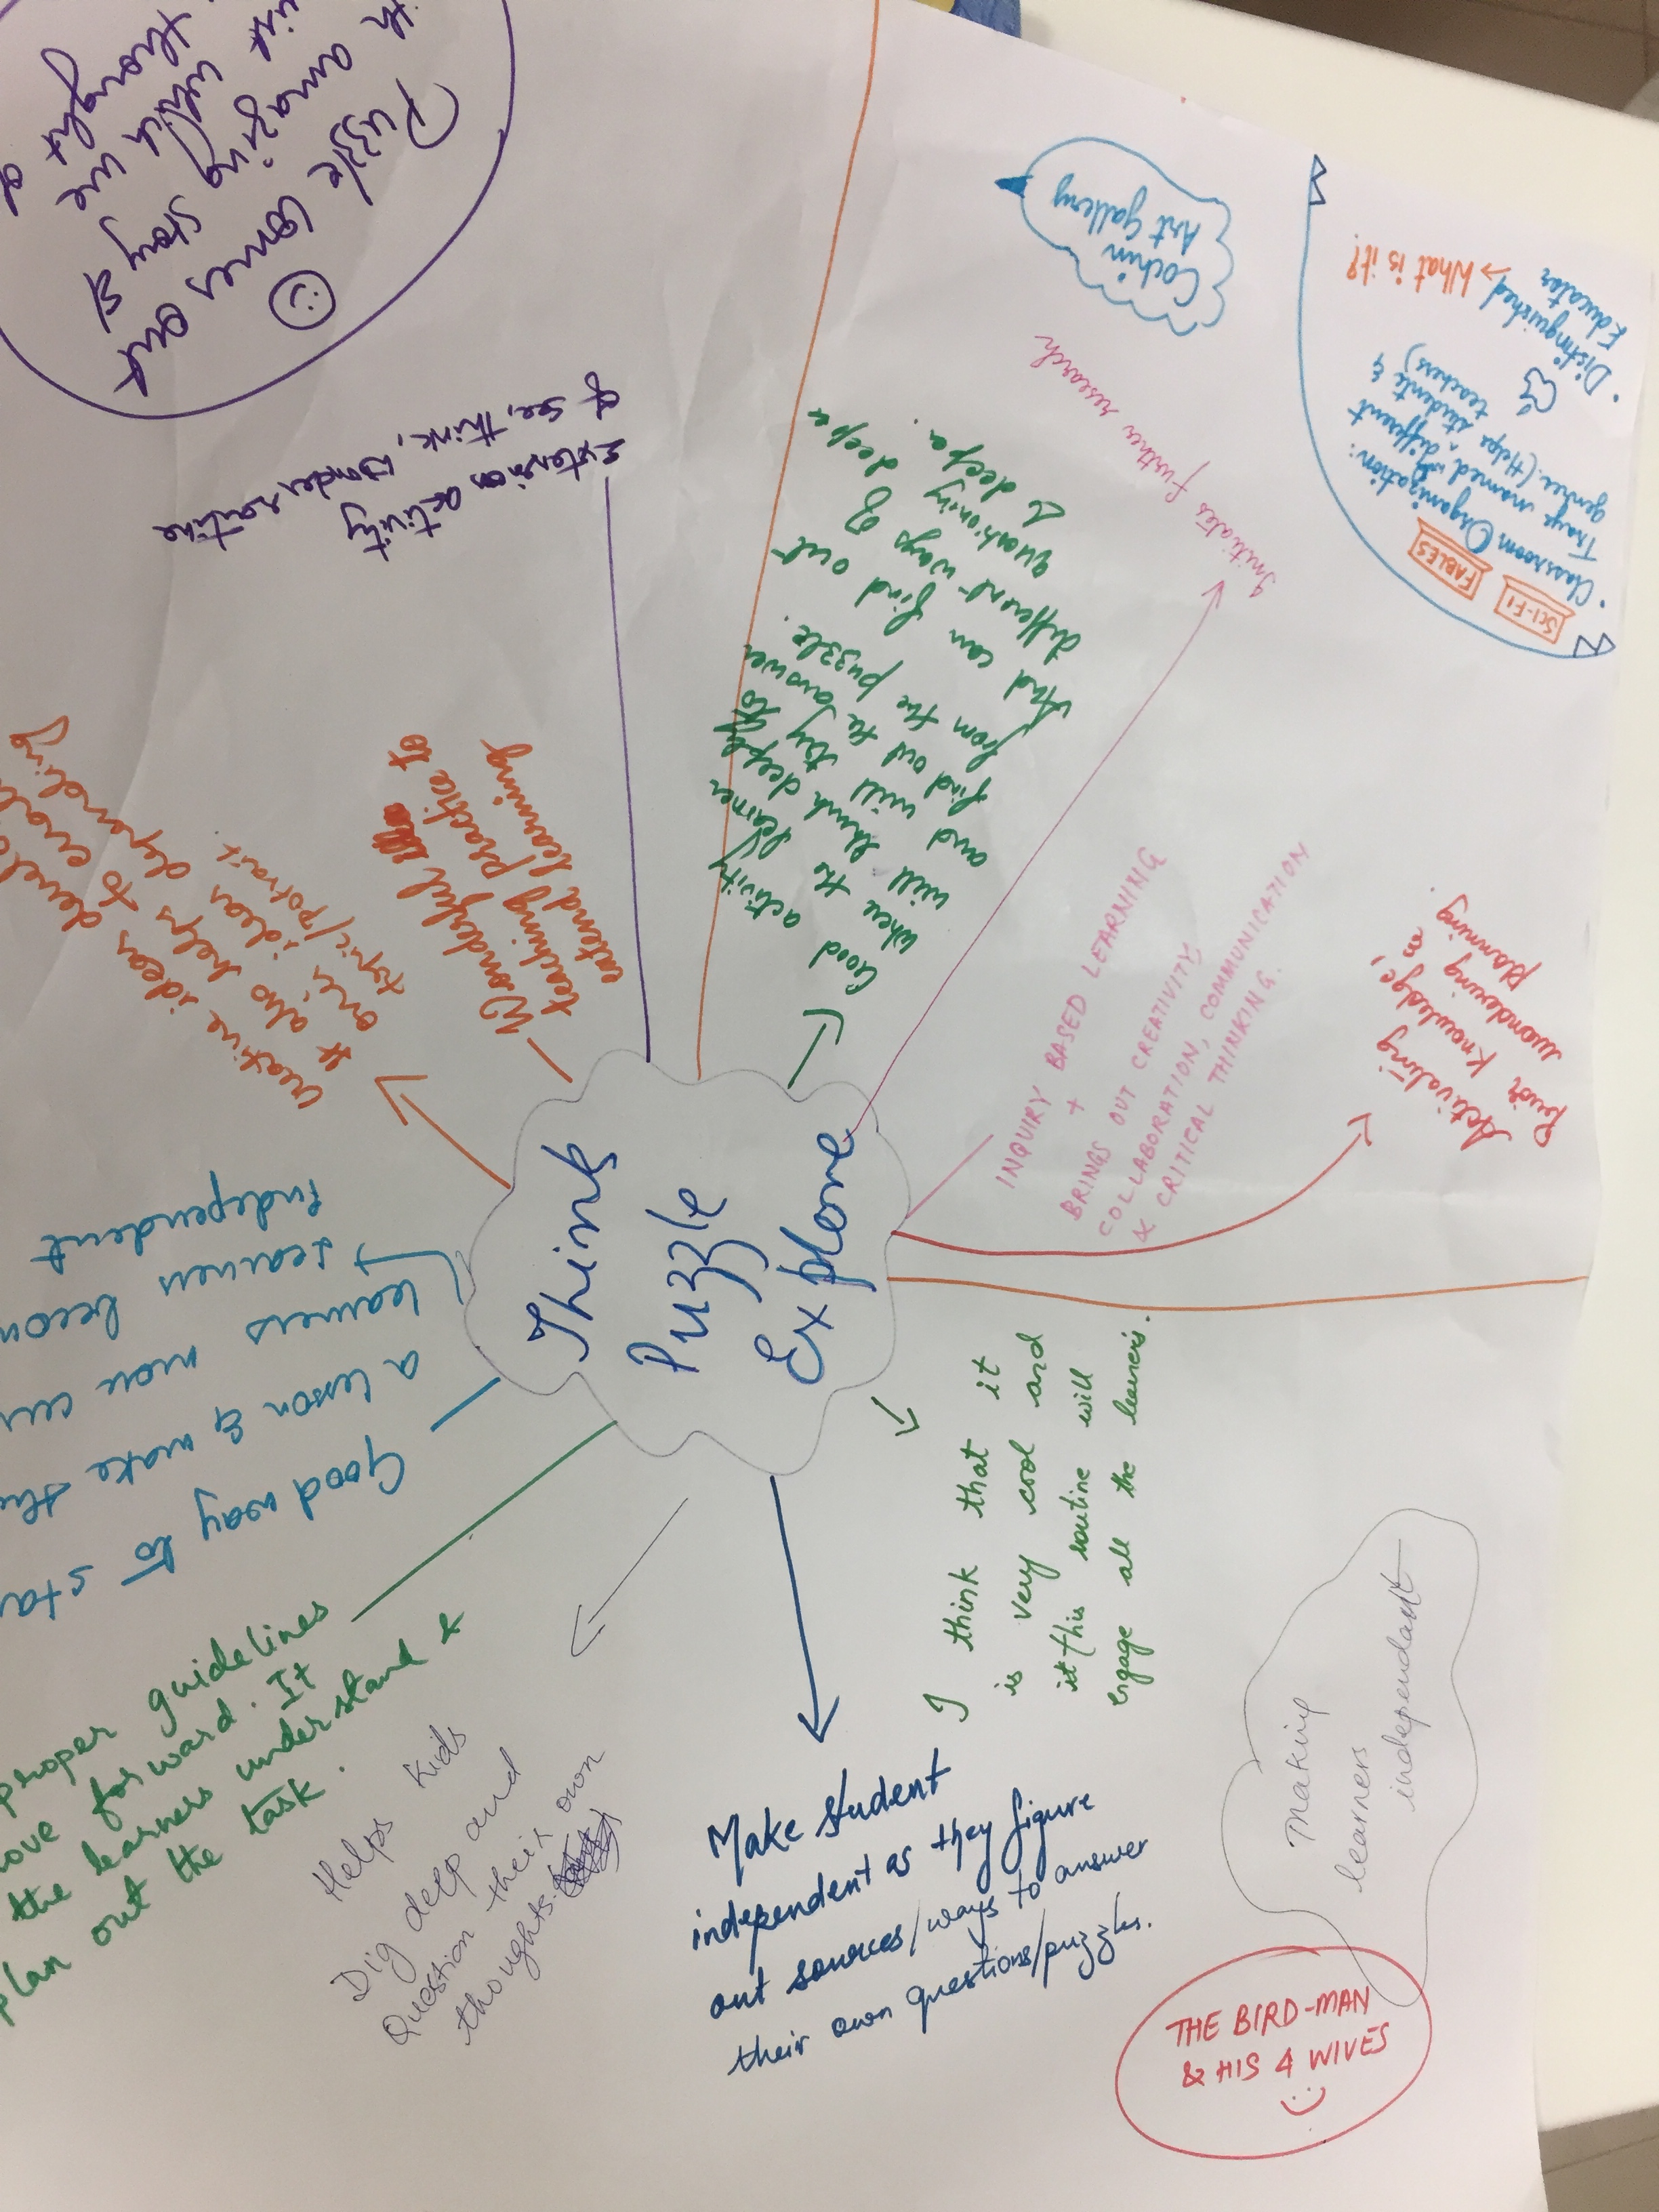 Think
Puzzle
Explore
Puzzle comes out
amazing story
which we
thought
Extension activity
of see, think, wonder routine
Wonderful
teaching practice to
extend learning
Creative ideas
It also helps to
one's ideas depending
topic/potrait
Good activity
when the learner
will think deeply
and will try to
find out the answer
from the puzzle.
And can find out
different ways of deeper
questioning
deeper.
Initiates further research
Cochin
Art gallery
• Classroom Organization:
Trays named w/ different
genres. (Helps students &
teachers)
SCI-FI
FABLES
• Distinguished → What is it?
Educator
INQUIRY BASED LEARNING
+
BRINGS OUT CREATIVITY
COLLABORATION, COMMUNICATION
& CRITICAL THINKING.
Activating
Prior Knowledge,
wondering &
planning
I think that it
is very cool and
it this routine will
engage all the learners.
Making
learners
independant
THE BIRD-MAN
& HIS 4 WIVES
Make student
independent as they figure
out sources/ways to answer
their own questions/puzzles.
Helps kids
Dig deep and
Question their own
thoughts.
proper guidelines
forward. It
the learners understand &
plan out the task.
Good way to
a lesson & make the
learners more
→ Learners
Independent